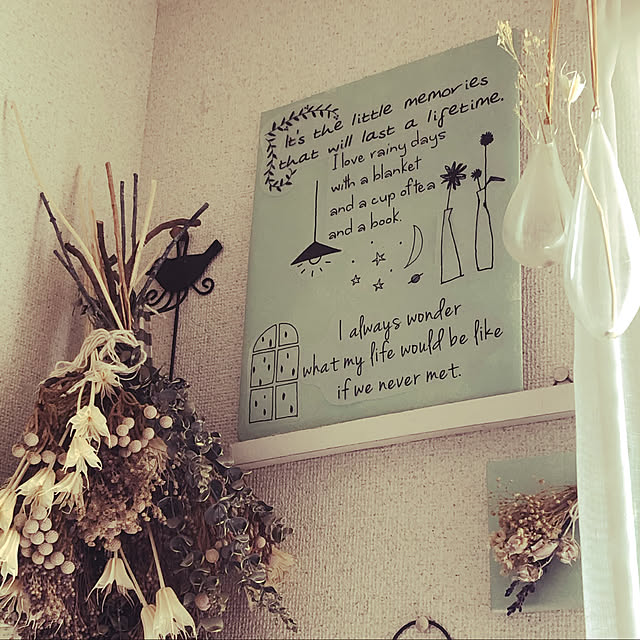 It's the little memories
that will last a lifetime.
I love rainy days
with a blanket
and a cup of tea
and a book.
I always wonder
what my life would be like
if we never met.